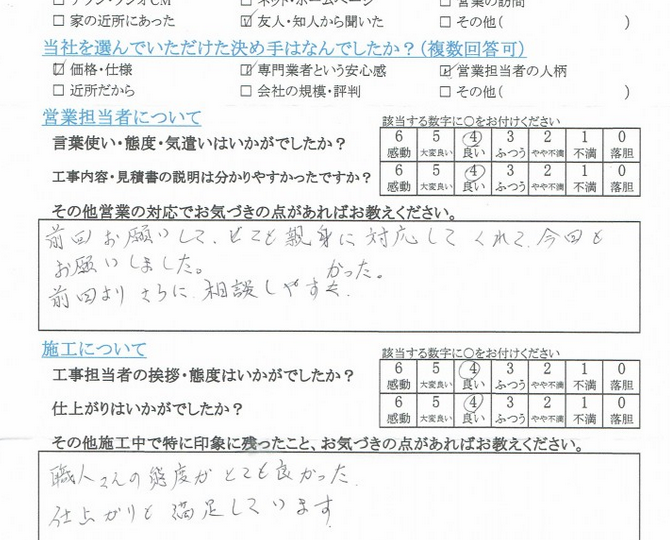 □ 家の近所にあった ☑ 友人・知人から聞いた □ その他( )
当社を選んでいただけた決め手はなんでしたか？(複数回答可)
☑ 価格・仕様 ☑ 専門業者という安心感 ☑ 営業担当者の人柄
□ 近所だから □ 会社の規模・評判 □ その他( )
営業担当者について
該当する数字に○をお付けください
言葉使い・態度・気遣いはいかがでしたか？
6 5 4 3 2 1 0
感動 大変良い 良い ふつう やや不満 不満 落胆
工事内容・見積書の説明は分かりやすかったですか？
6 5 4 3 2 1 0
感動 大変良い 良い ふつう やや不満 不満 落胆
その他営業の対応でお気づきの点があればお教えください。
前回お願いして、とても親身に対応してくれて、今回も
お願いしました。
かった。
前回よりさらに相談しやす
施工について
該当する数字に○をお付けください
工事担当者の挨拶・態度はいかがでしたか？
6 5 4 3 2 1 0
感動 大変良い 良い ふつう やや不満 不満 落胆
仕上がりはいかがでしたか？
6 5 4 3 2 1 0
感動 大変良い 良い ふつう やや不満 不満 落胆
その他施工中で特に印象に残ったこと、お気づきの点があればお教えください。
職人さんの態度がとても良かった。
仕上がりも満足しています